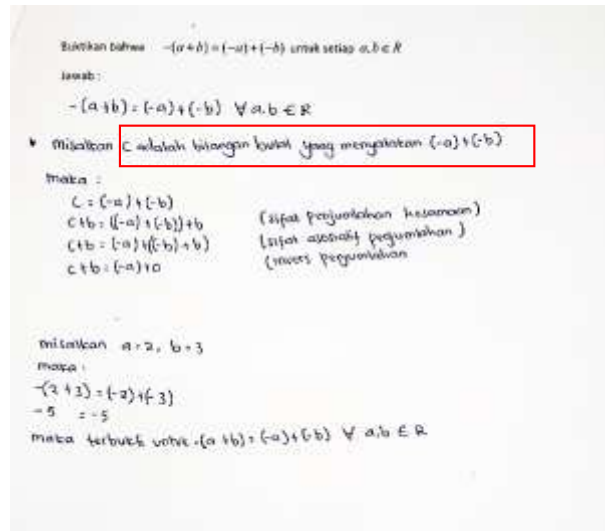 Buktikan bahwa -(a+b) = (-a)+(-b) untuk setiap a,b ∈ R
Jawab :
-(a+b) = (-a)+(-b) ∀ a.b ∈ R
misalkan C adalah bilangan bulat yang menyatakan (-a)+(-b)
maka :
C = (-a)+(-b)
C+b = ((-a)+(-b))+b (sifat penjumlahan kesamaan)
C+b = (-a)+((-b)+b) (sifat asosiatif penjumlahan)
c+b = (-a)+0 (invers penjumlahan
misalkan a=2, b=3
maka :
-(2+3) = (-2)+(-3)
-5 = -5
maka terbukti untuk -(a+b) = (-a)+(-b) ∀ a.b ∈ R